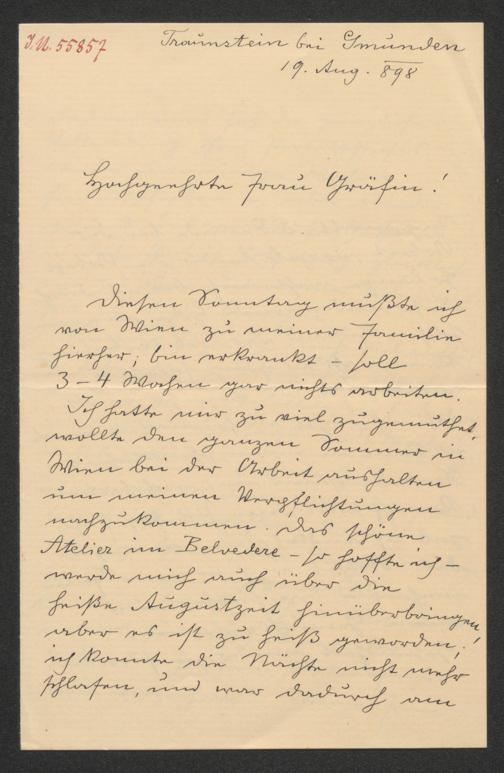 J.N. 55857
Traunstein bei Gmunden
19. Aug. 898
Hochgeehrte Frau Gräfin!
Diesen Sonntag mußte ich
von Wien zu meiner Familie
hierher; bin erkrankt – soll
3–4 Wochen gar nichts arbeiten.
Ich hatte mir zu viel zugemuthet,
wollte den ganzen Sommer in
Wien bei der Arbeit aushalten
um meinen Verpflichtungen
nachzukommen. Das schöne
Atelier im Belvedere – so hoffte ich –
werde mich auch über die
heiße Augustzeit hinüberbringen,
aber es ist zu heiß geworden;
ich konnte die Nächte nicht mehr
schlafen, und war dadurch am